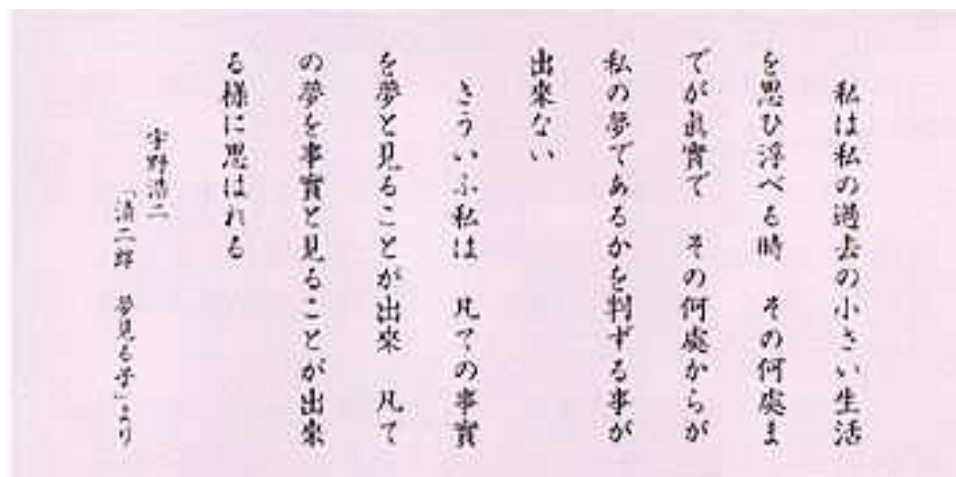 私は私の過去の小さい生活
を思ひ浮べる時　その何處ま
でが眞實で　その何處からが
私の夢であるかを判ずる事が
出來ない
さういふ私は　凡ての事實
を夢と見ることが出來　凡て
の夢を事實と見ることが出來
る様に思はれる
宇野浩二
「清二郎　夢見る子」より